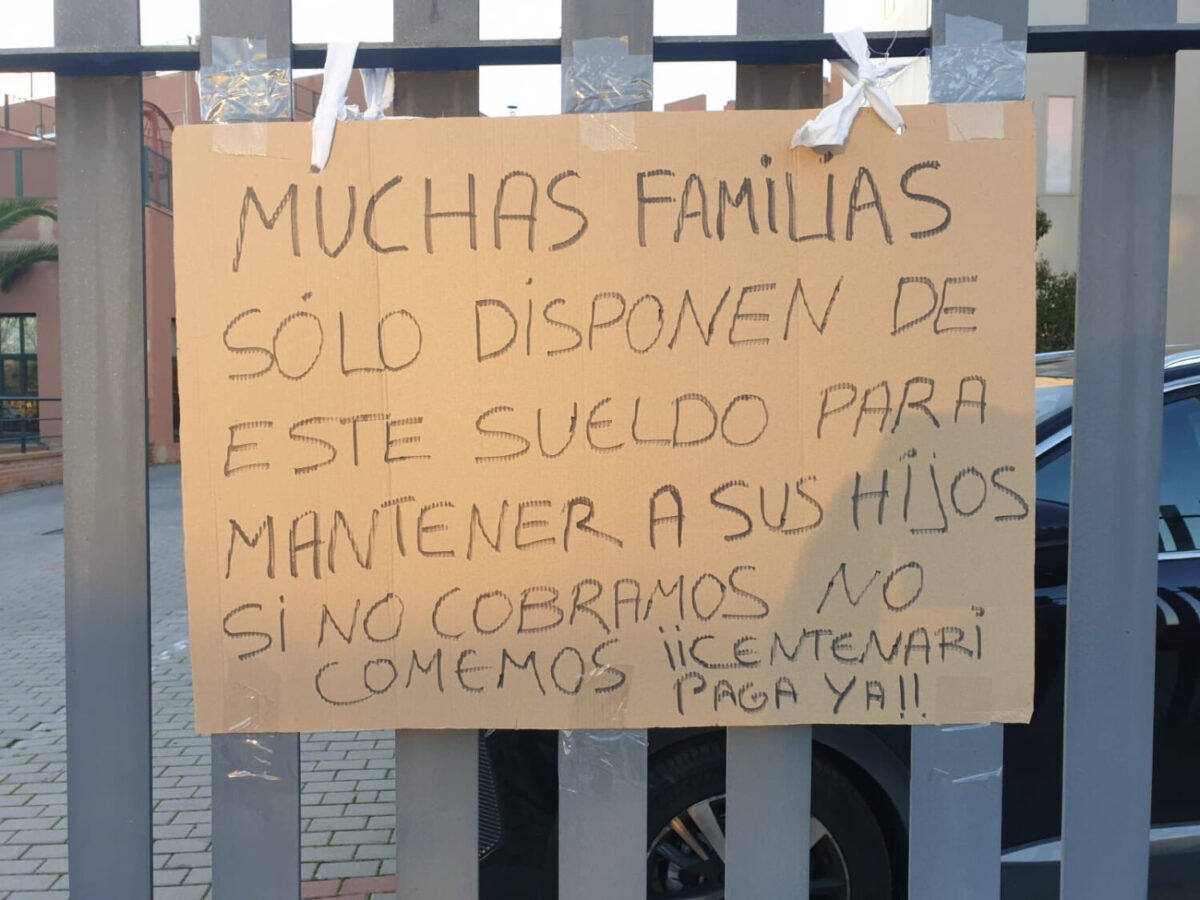 MUCHAS FAMILIAS
SÓLO DISPONEN DE
ESTE SUELDO PARA
MANTENER A SUS HIJOS
SI NO COBRAMOS NO
COMEMOS ¡¡CENTENARI
PAGA YA!!